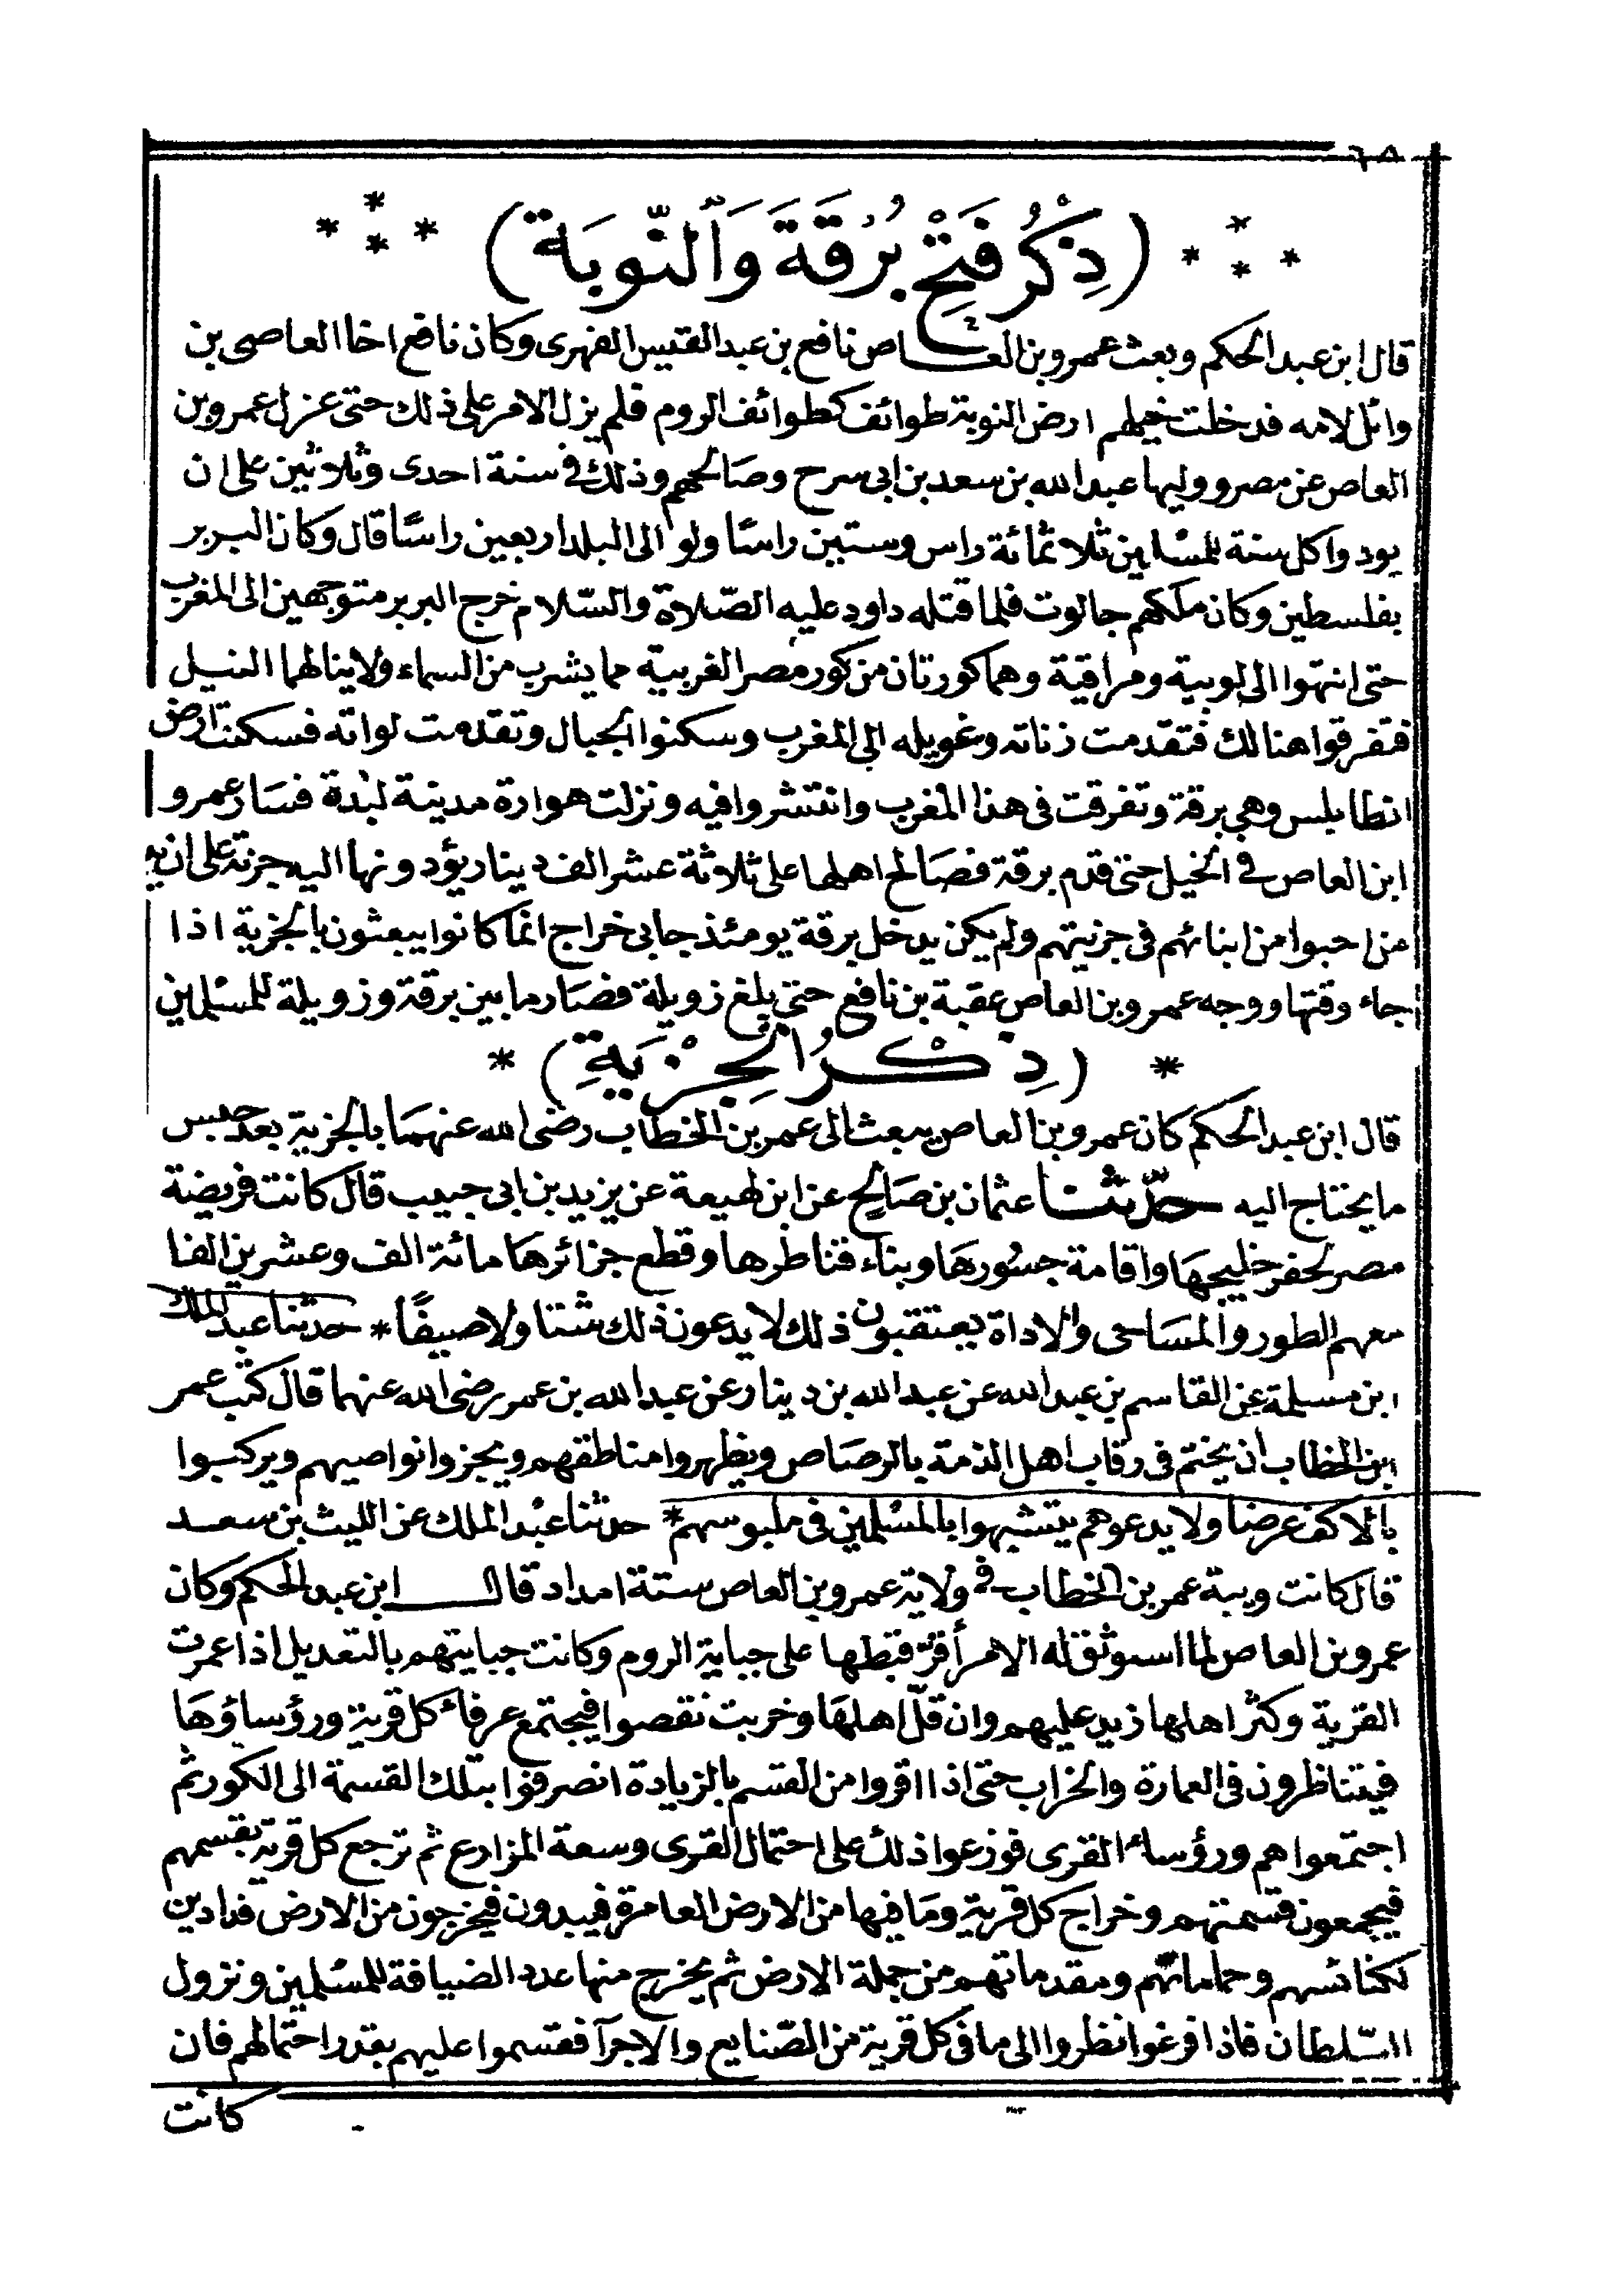 ٦٨
(ذِكْرُ فَتْحِ بُرْقَةَ وَالنُّوبَةِ)
قال ابن عبد الحكم وبعث عمرو بن العاص نافع بن عبد القيس الفهرى وكان نافع اخا العاصى بن
وائل لامه فدخلت خيلهم ارض النوبة طوائف كطوائف الروم فلم يزل الامر على ذلك حتى عزل عمرو بن
العاص عن مصر ووليها عبد الله بن سعد بن ابى سرح وصالحهم وذلك فى سنة احدى وثلاثين على ان
يودوا كل سنة للمسلمين ثلاثمائة راس وستين راسًا ولوالى البلد اربعين راسًا قال وكان البربر
بفلسطين وكان ملكهم جالوت فلما قتله داود عليه الصّلاة والسّلام خرج البربر متوجهين الى المغرب
حتى انتهوا الى لوبية ومراقية وهما كورتان من كور مصر الغربية مما يشرب من السماء ولا ينالهما النيل
فتفرقوا هنالك فتقدمت زناته ومغويله الى المغرب وسكنوا الجبال وتقدمت لواته فسكنت ارض
انطابلس وهى برقة وتفرقت فى هذا المغرب وانتشروا فيه ونزلت هوارة مدينة لبدة فسار عمرو
ابن العاص فى الخيل حتى قدم برقة فصالح اهلها على ثلاثة عشر الف دينار يؤدونها اليه جزية على ان
من احبوا من ابنائهم فى جزيتهم ولم يكن يدخل برقة يومئذ جابى خراج انما كانوا يبعثون بالجزية اذا
جاء وقتها ووجه عمرو بن العاص عقبة بن نافع حتى بلغ زويلة فصار ما بين برقة وزويلة للمسلمين
* (ذِكْرُ الْجِزْيَةِ) *
قال ابن عبد الحكم كان عمرو بن العاص يبعث الى عمر بن الخطاب رضى الله عنهما بالجزية بعد حبس
ما يحتاج اليه حدّثنا عثمان بن صالح عن ابن لهيعة عن يزيد بن ابى حبيب قال كانت فريضة
مصر لحفر خليجها واقامة جسورها وبناء قناطرها وقطع جزائرها مائة الف وعشرين الفا
معهم الطور والمساحى والاداة يعتقبون ذلك لا يدعون ذلك شتا ولا صيفًا * حدثنا عبد الملك
ابن مسلمة عن القاسم بن عبد الله عن عبد الله بن دينار عن عبد الله بن عمر رضى الله عنهما قال كتب عمر
ابن الخطاب ان يختم فى رقاب اهل الذمة بالرصاص ويظهروا مناطقهم ويجزوا نواصيهم ويركبوا
بالاكف عرضا ولا يدعوهم يتشبهوا بالمسلمين فى ملبوسهم * حدثنا عبد الملك عن الليث بن سعد
قال كانت ويبة عمر بن الخطاب فى ولاية عمرو بن العاص ستة امداد قال ابن عبد الحكم وكان
عمرو بن العاص لما استوثق له الامر أقرّ قبطها على جباية الروم وكانت جبايتهم بالتعديل اذا عمرت
القرية وكثر اهلها زيد عليهم وان قلّ اهلها وخربت نقصوا فيجتمع عرفاء كل قرية ورؤساؤها
فيتناظرون فى العمارة والخراب حتى اذا اقروا من القسم بالزيادة انصرفوا بتلك القسمة الى الكور ثم
اجتمعوا هم ورؤساء القرى فوزعوا ذلك على احتمال القرى وسعة المزارع ثم ترجع كل قرية بقسمهم
فيجمعون قسمتهم وخراج كل قرية وما فيها من الارض العامرة فيبدون فيخرجون من الارض فدادين
لكنائسهم وحماماتهم ومقدماتهم من جملة الارض ثم يخرج منها عدد الضيافة للمسلمين ونزول
السّلطان فاذا فرغوا نظروا الى ما فى كل قرية من الصّنايع والاجرآ فقسموا عليهم بقدر احتمالهم فان
كانت